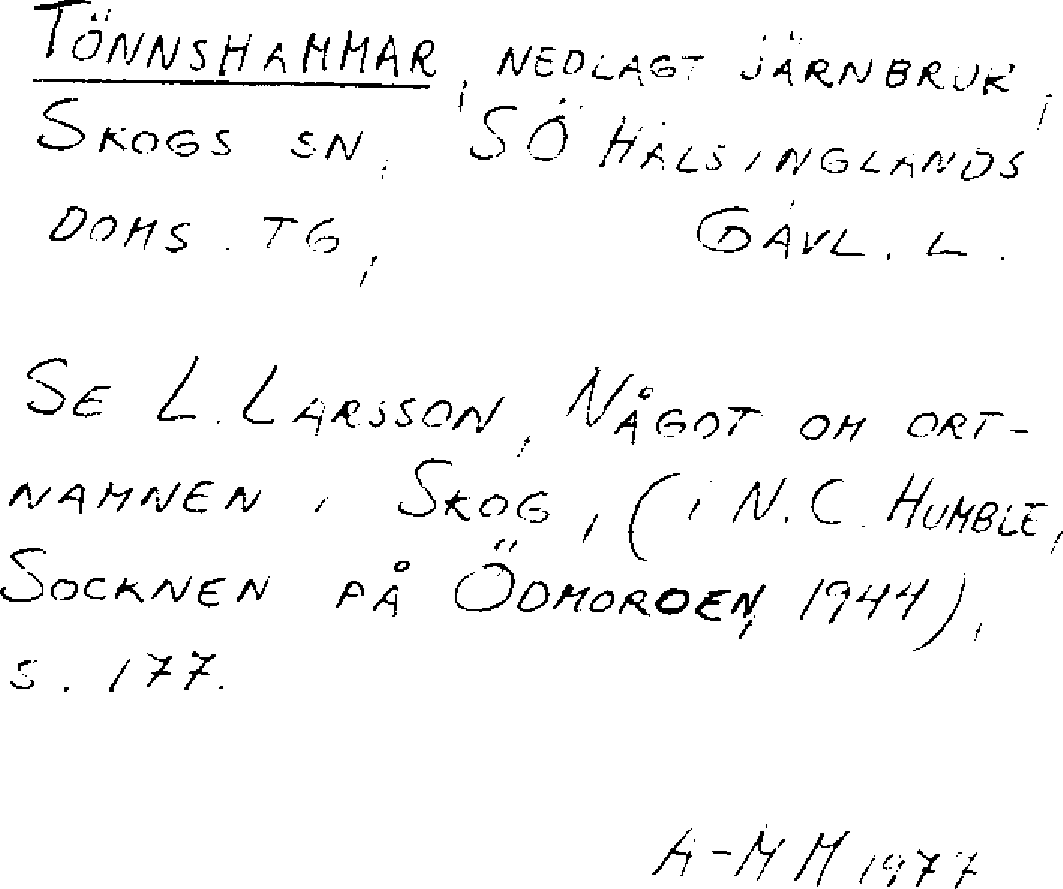 TÖNNSHAMMAR, NEDLAGT JÄRNBRUK,
SKOGS SN, SÖ HÄLSINGLANDS
DOMS. TG, GÄVL. L.
SE L. LARSSON, NÅGOT OM ORT-
NAMNEN I SKOG, (i N.C. HUMBLE,
SOCKNEN PÅ ÖDMORDEN, 1944),
S. 177.
A-MM 1977